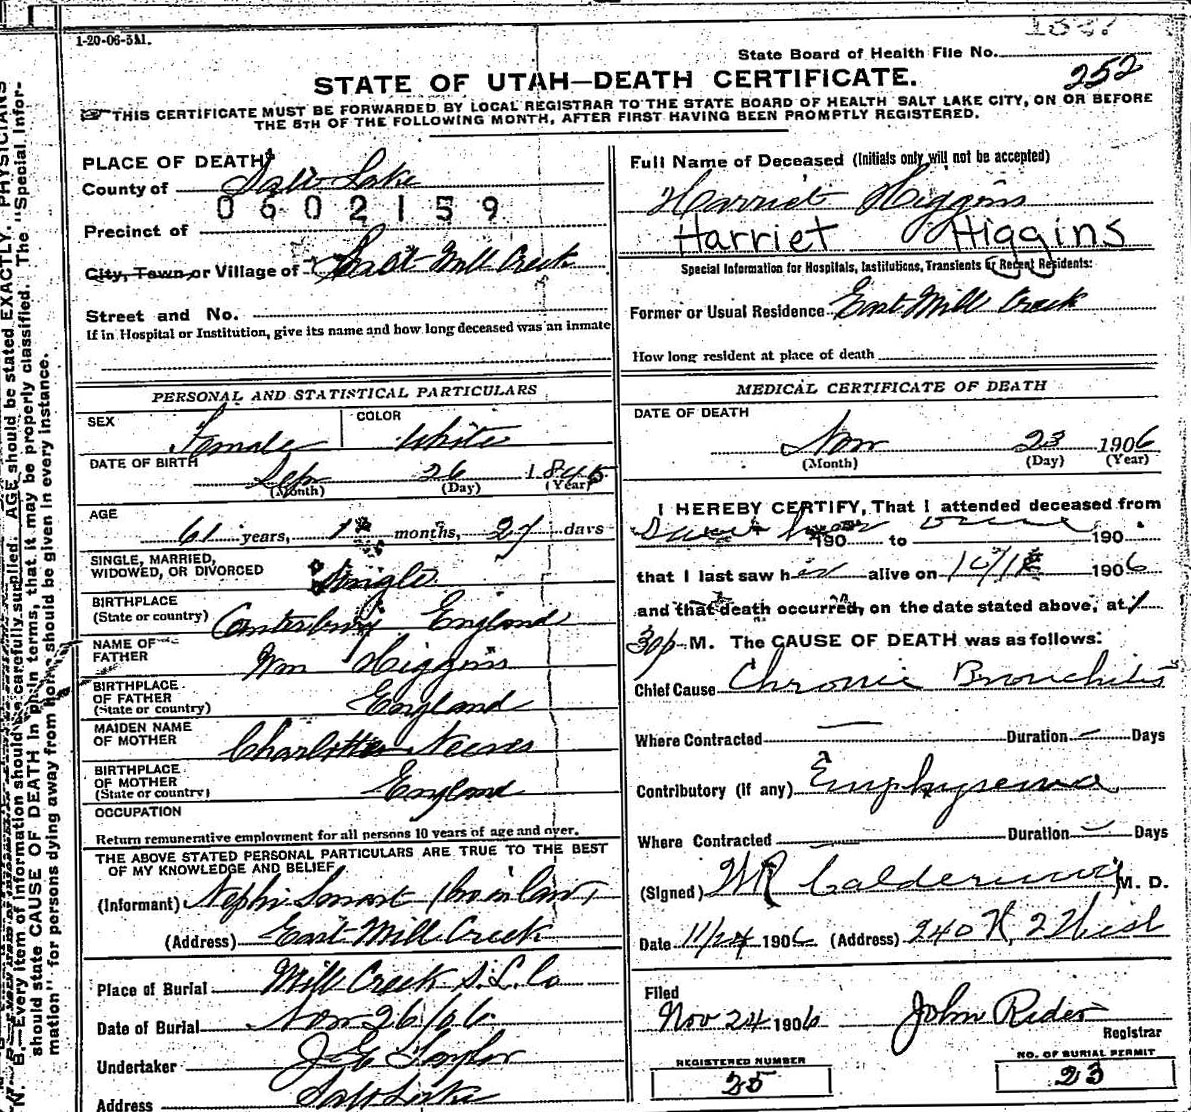 1
1-20-06-5M.
State Board of Health File No.
252
STATE OF UTAH—DEATH CERTIFICATE.
THIS CERTIFICATE MUST BE FORWARDED BY LOCAL REGISTRAR TO THE STATE BOARD OF HEALTH SALT LAKE CITY, ON OR BEFORE
THE 5TH OF THE FOLLOWING MONTH, AFTER FIRST HAVING BEEN PROMPTLY REGISTERED.
PLACE OF DEATH
County of Salt Lake
0602159
Precinct of
City, Town or Village of East Mill Creek
Street and No.
If in Hospital or Institution, give its name and how long deceased was an inmate
Full Name of Deceased (Initials only will not be accepted)
Harriet Higgins
Harriet Higgins
Special Information for Hospitals, Institutions, Transients or Recent Residents:
Former or Usual Residence East Mill Creek
How long resident at place of death
PERSONAL AND STATISTICAL PARTICULARS
SEX Female COLOR White
DATE OF BIRTH
Sep 26 1845
(Month) (Day) (Year)
AGE
61 years, 1 months, 27 days
SINGLE, MARRIED,
WIDOWED, OR DIVORCED Single
BIRTHPLACE
(State or country) Canterbury England
NAME OF
FATHER Wm Higgins
BIRTHPLACE
OF FATHER
(State or country) England
MAIDEN NAME
OF MOTHER Charlotte Neeves
BIRTHPLACE
OF MOTHER
(State or country) England
OCCUPATION
Return remunerative employment for all persons 10 years of age and over.
THE ABOVE STATED PERSONAL PARTICULARS ARE TRUE TO THE BEST
OF MY KNOWLEDGE AND BELIEF
(Informant) Nephi Smart
(Address) East Mill Creek
Place of Burial Mill Creek S. L. Co
Date of Burial Nov 26/06
Undertaker J E Taylor
Address Salt Lake
MEDICAL CERTIFICATE OF DEATH
DATE OF DEATH
Nov 23 1906
(Month) (Day) (Year)
I HEREBY CERTIFY, That I attended deceased from
190 to 190
that I last saw her alive on 1906
and that death occurred, on the date stated above, at 1
30 p M. The CAUSE OF DEATH was as follows:
Chief Cause Chronic Bronchitis
Where Contracted Duration Days
Contributory (If any) Emphysema
Where Contracted Duration Days
(Signed) M. D.
Date 11/24 1906 (Address) 240 N, 2 West
Filed
Nov 24 1906 John Rider
Registrar
REGISTERED NUMBER
25
NO. OF BURIAL PERMIT
23
N. B.—Every item of information should be carefully supplied. AGE should be stated EXACTLY. PHYSICIANS
should state CAUSE OF DEATH in plain terms, that it may be properly classified. The "Special Infor-
mation" for persons dying away from home should be given in every instance.